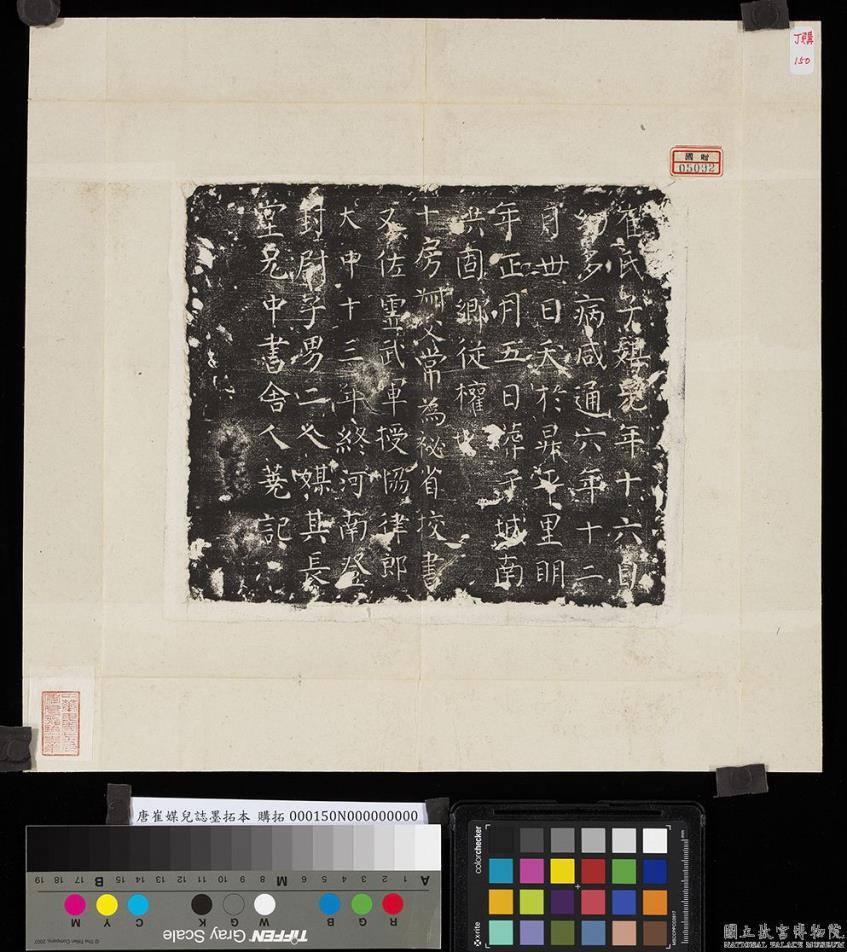 丁購
150
國財
05092
崔氏子媒兒年十六自
幼多病咸通六年十二
月卅日夭於昇平里明
年正月五日葬于城南
洪固鄉從權也
十房 父常為秘省挍書
又佐靈武軍授協律郎
大中十三年終河南登
封尉子男二人媒其長
堂兄中書舍人蕘記
唐崔媒兒誌墨拓本 購拓 000150N000000000
19 18 17 16 15 14 13 12 11 10 9 8 7 6 5 4 3 2 1
B M A
M Y C K G W B G R
© The Tiffen Company, 2007
TIFFEN Gray Scale
colorchecker
x-rite
mm
國立故宮博物院
NATIONAL PALACE MUSEUM